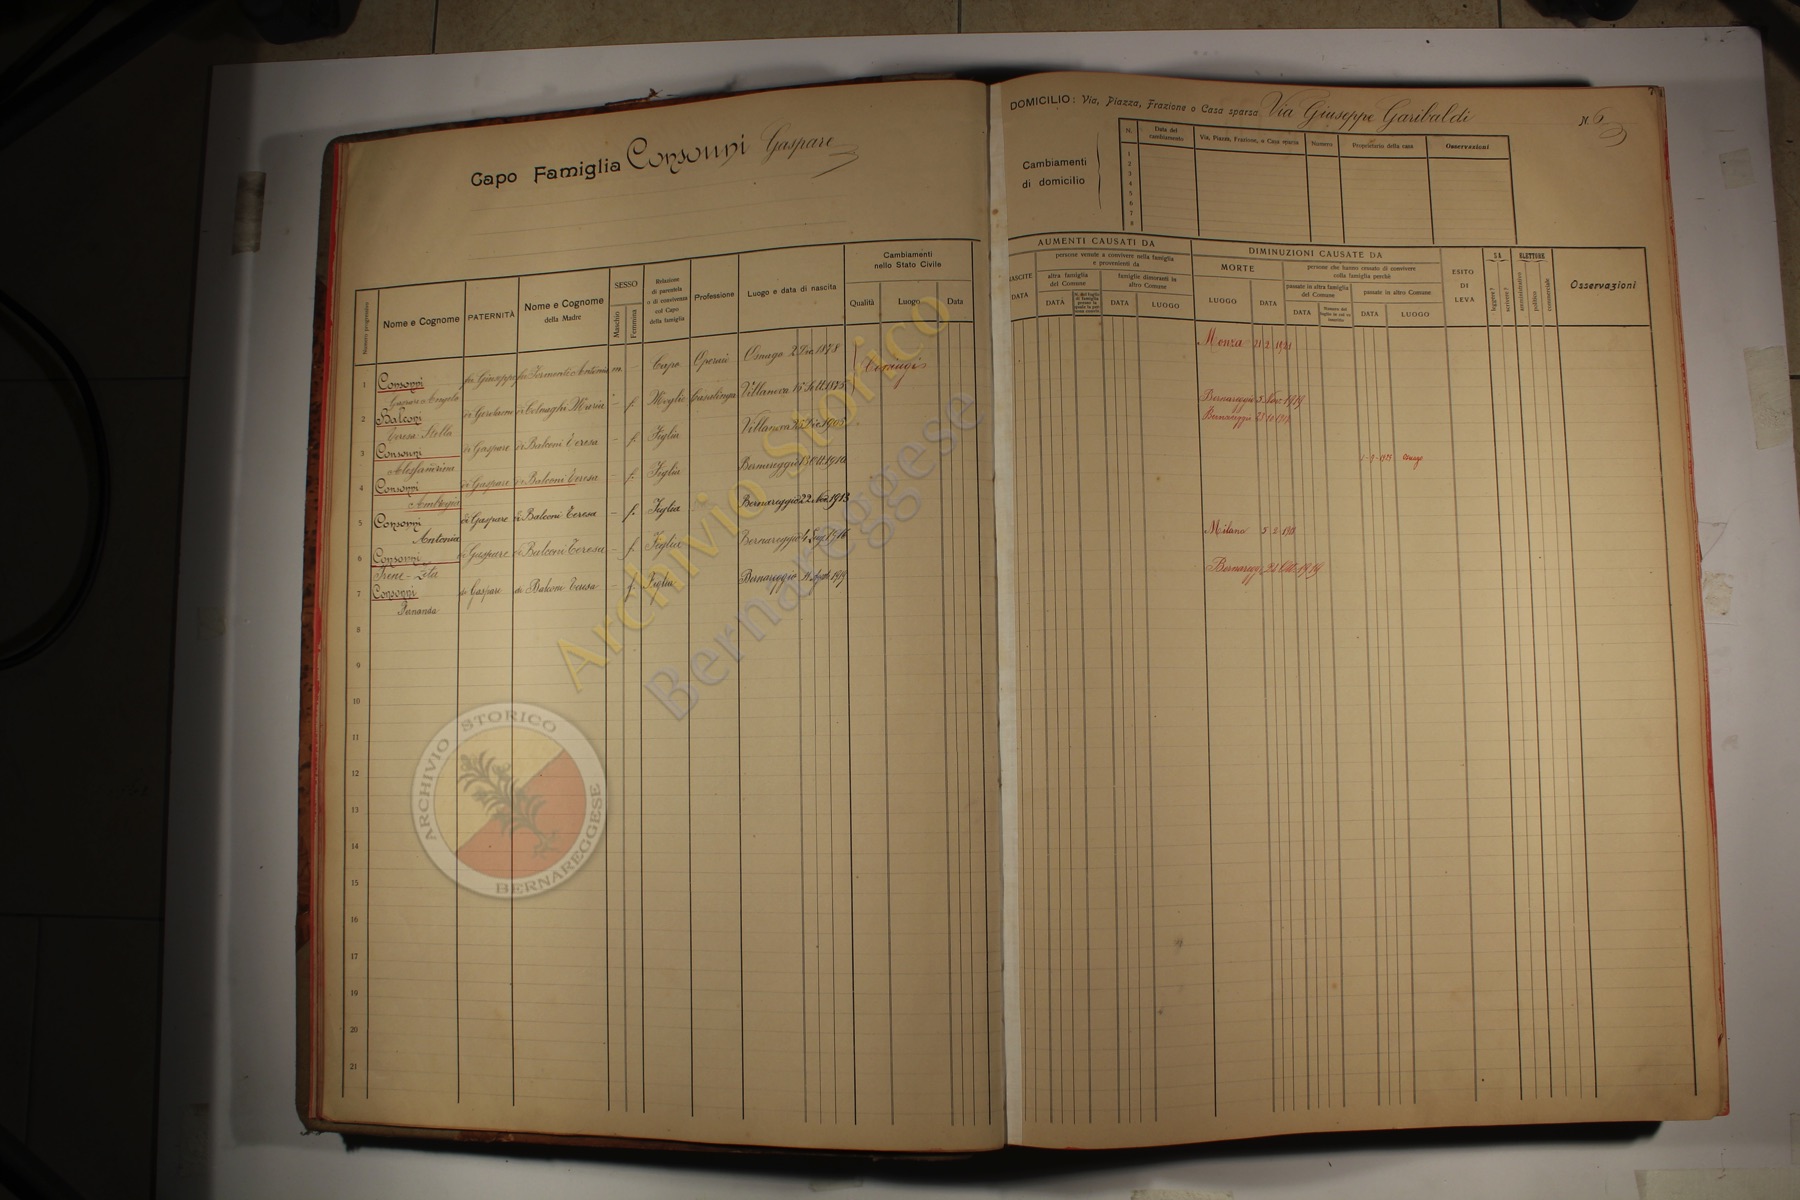 Capo Famiglia Consonni Gaspare
DOMICILIO: Via, Piazza, Frazione o Casa sparsa Via Giuseppe Garibaldi N. 6
Cambiamenti di domicilio
N. Data del cambiamento Via, Piazza, Frazione, o Casa sparsa Numero Proprietario della casa Osservazioni
1
2
3
4
5
6
7
8
Numero progressivo
Nome e Cognome
PATERNITÀ
Nome e Cognome della Madre
SESSO
Maschio
Femmina
Relazione di parentela o di convivenza col Capo della famiglia
Professione
Luogo e data di nascita
Cambiamenti nello Stato Civile
Qualità Luogo Data
AUMENTI CAUSATI DA
NASCITE DATA
persone venute a convivere nella famiglia e provenienti da
altra famiglia del Comune
DATA
famiglie dimoranti in altro Comune
DATA LUOGO
DIMINUZIONI CAUSATE DA
MORTE
LUOGO DATA
persone che hanno cessato di convivere colla famiglia perchè
passate in altra famiglia del Comune
DATA
passate in altro Comune
DATA LUOGO
ESITO DI LEVA
SA
leggere?
scrivere?
ELETTORE
amministrativo
politico
commerciale
Osservazioni
1 Consonni fu Giuseppe m Capo Operaio Omago 2 Dic. 1878 Coniugi Monza 21 2 1921
Gaspare Angelo
2 Balconi di Gerolamo di Colnaghi Maria - f. Moglie Casalinga Villanova 15 Sett. 1875 Bernareggio 5 Nov. 1919
Teresa Stella
3 Consonni di Gaspare di Balconi Teresa - f. Figlia Villanova Dic. Bernareggio
Alessandrina
4 Consonni di Gaspare di Balconi Teresa - f. Figlia Bernareggio 13 Ott. 1910
Ambrogia
5 Consonni di Gaspare di Balconi Teresa - f. Figlia Bernareggio 22 Nov. 1913
Antonia
6 Consonni di Gaspare di Balconi Teresa - f. Figlia Bernareggio 1916 Milano 5 2
Irene - Zita
7 Consonni di Gaspare di Balconi Teresa - f. Figlia Bernareggio 14 Agosto 1919 Bernaregg. 21 Ott. 1919
Fernanda
8
9
10
11
12
13
14
15
16
17
18
19
20
21
Archivio Storico
Bernareggese
ARCHIVIO STORICO
BERNAREGGESE